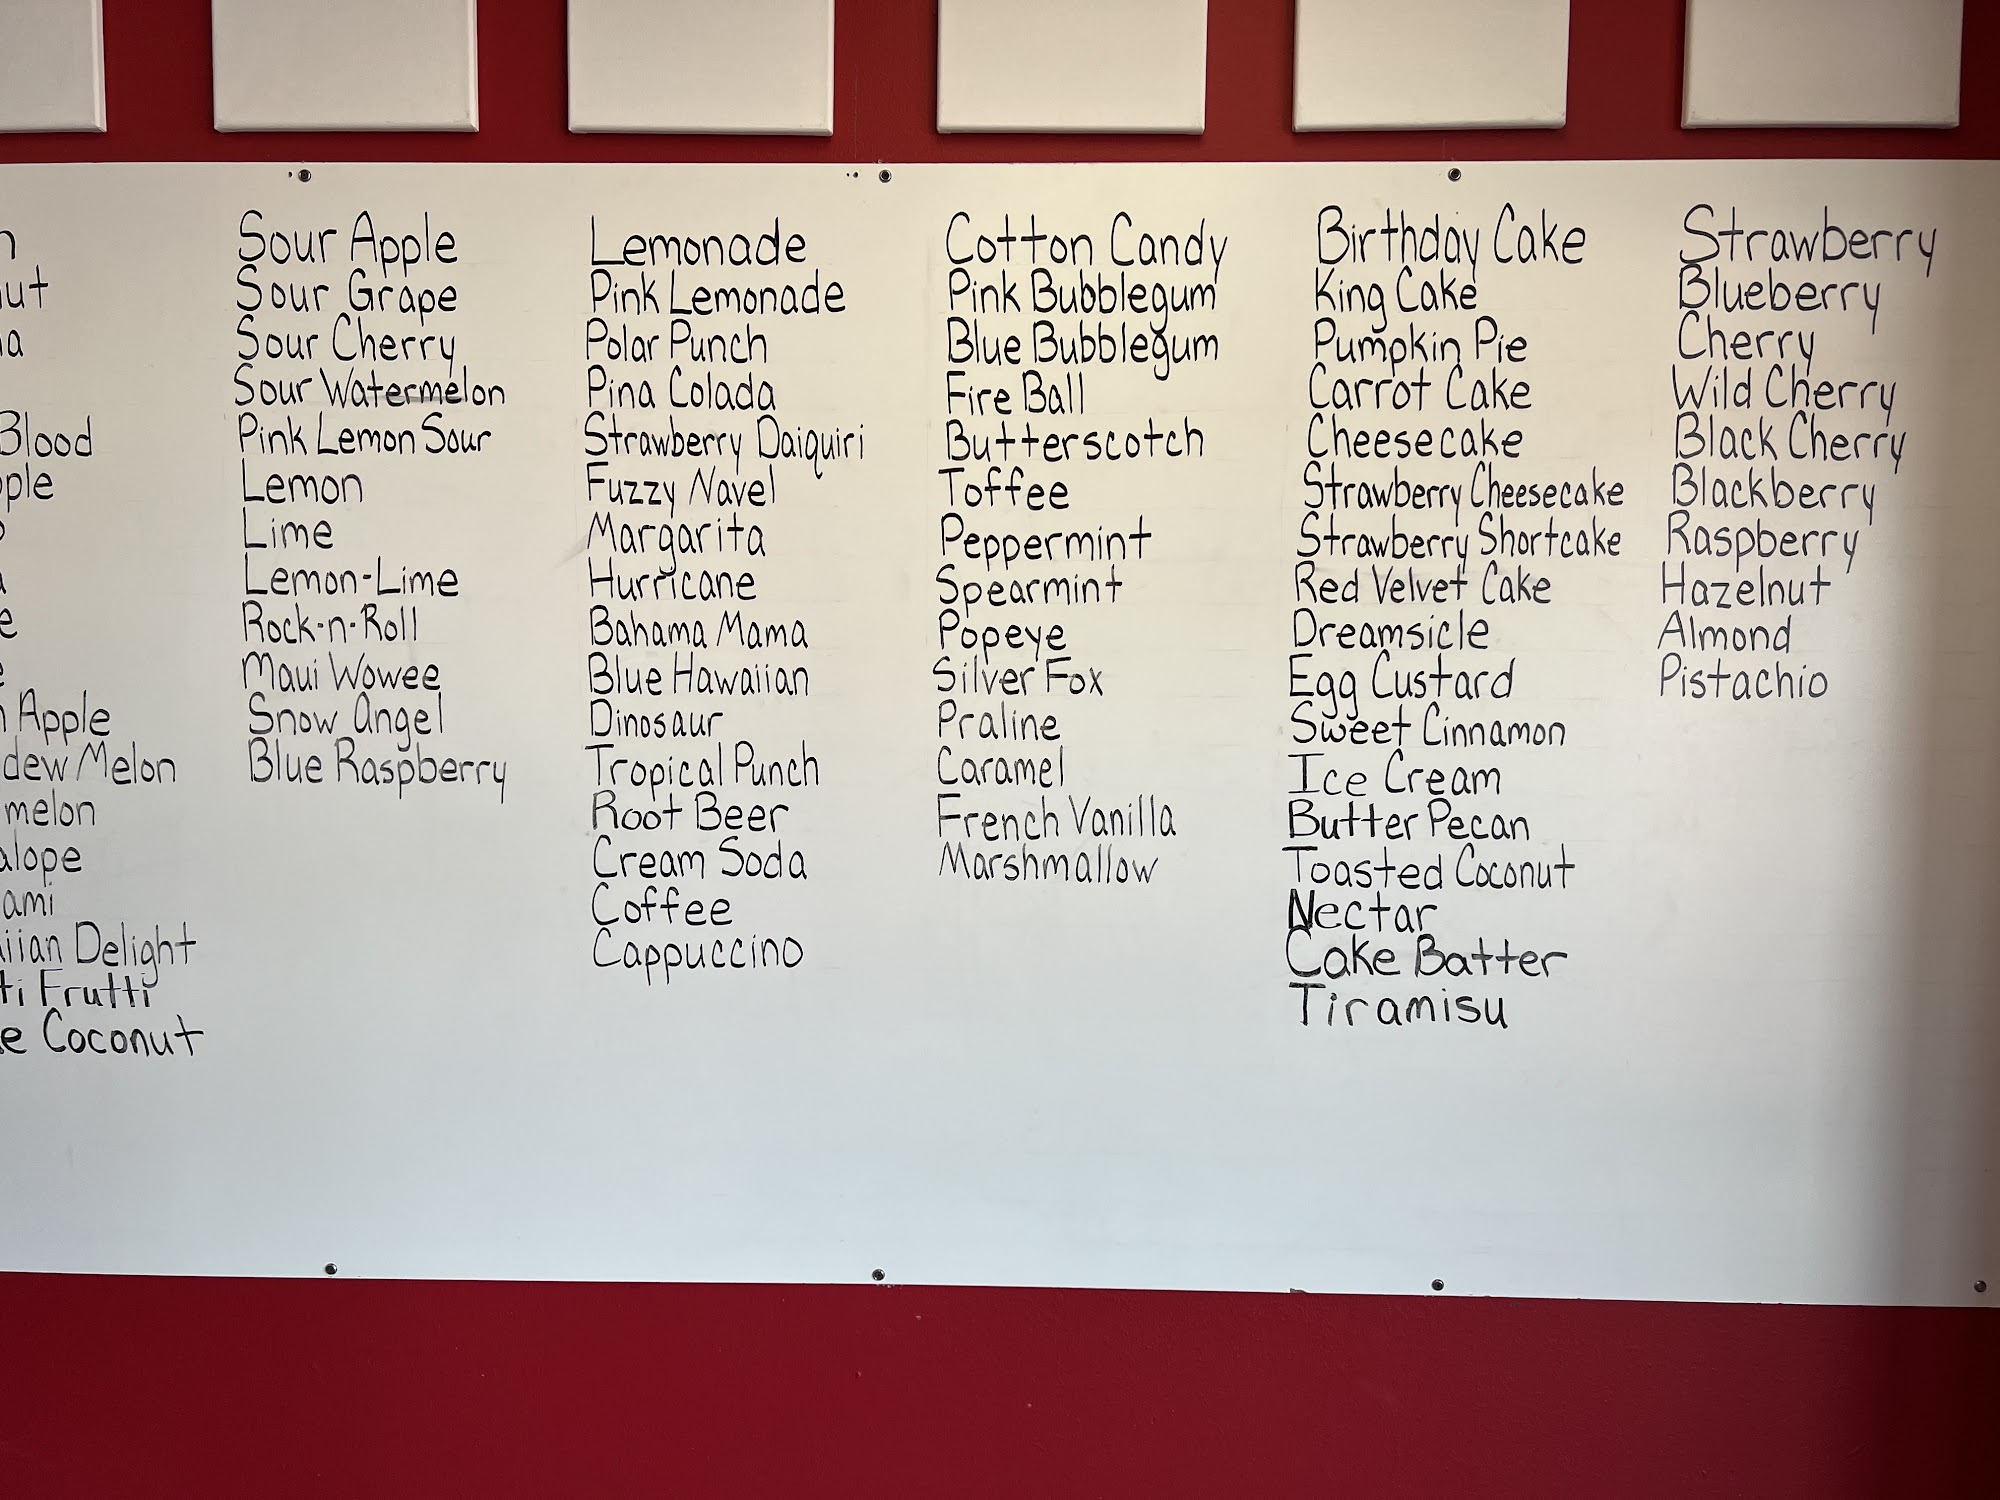 Blood
Apple
Melon
melon
Delight
Frutti
Coconut
Sour Apple
Sour Grape
Sour Cherry
Sour Watermelon
Pink Lemon Sour
Lemon
Lime
Lemon-Lime
Rock-n-Roll
Maui Wowee
Snow Angel
Blue Raspberry
Lemonade
Pink Lemonade
Polar Punch
Pina Colada
Strawberry Daiquiri
Fuzzy Navel
Margarita
Hurricane
Bahama Mama
Blue Hawaiian
Dinosaur
Tropical Punch
Root Beer
Cream Soda
Coffee
Cappuccino
Cotton Candy
Pink Bubblegum
Blue Bubblegum
Fire Ball
Butterscotch
Toffee
Peppermint
Spearmint
Popeye
Silver Fox
Praline
Caramel
French Vanilla
Marshmallow
Birthday Cake
King Cake
Pumpkin Pie
Carrot Cake
Cheesecake
Strawberry Cheesecake
Strawberry Shortcake
Red Velvet Cake
Dreamsicle
Egg Custard
Sweet Cinnamon
Ice Cream
Butter Pecan
Toasted Coconut
Nectar
Cake Batter
Tiramisu
Strawberry
Blueberry
Cherry
Wild Cherry
Black Cherry
Blackberry
Raspberry
Hazelnut
Almond
Pistachio